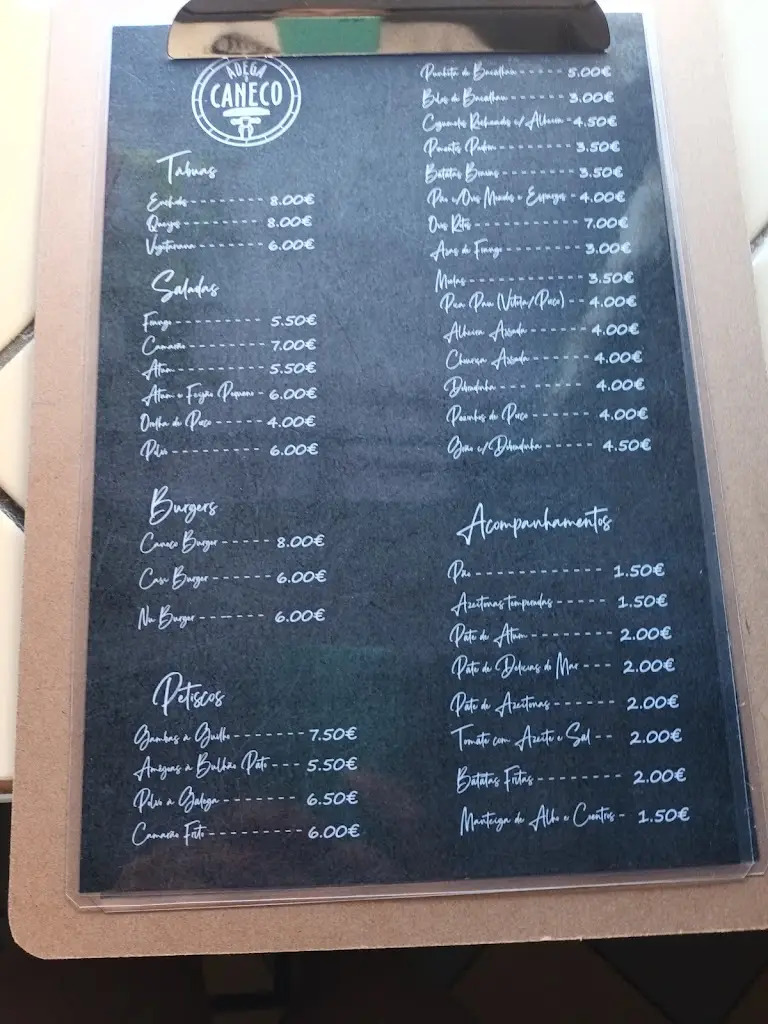 ADEGA
CANECO
Tabuas
Enchidos ---------- 8.00€
Queijo ---------- 8.00€
Vegetariana ---------- 6.00€
Saladas
Frango ---------- 5.50€
Camarão ---------- 7.00€
Atum ---------- 5.50€
Atum e Feijão Pequeno - 6.00€
Orelha de Porco ------- 4.00€
Polvo ---------- 6.00€
Burgers
Caneco Burger ----- 8.00€
Burger ------ 6.00€
Burger ------- 6.00€
Petiscos
Gambas à Guilho -------- 7.50€
Amêijoas à Bulhão Pato --- 5.50€
Polvo à Galega -------- 6.50€
Camarão Frito ---------- 6.00€
Punheta de Bacalhau ----- 5.00€
de Bacalhau ------- 3.00€
Cogumelos Recheados c/ Alheira - 4.50€
Pimentos Padron -------- 3.50€
Batatas Bravas -------- 3.50€
Pão c/Ovos Mexidos e Espargos - 4.00€
Ovos Rotos ---------- 7.00€
Asas de Frango -------- 3.00€
Moelas ---------- 3.50€
Pica Pau (Vitela/Porco) -- 4.00€
Alheira Assada ------- 4.00€
Chouriça Assada ------ 4.00€
Dobradinha --------- 4.00€
Pezinhos de Porco ------ 4.00€
Grão c/Dobradinha ----- 4.50€
Acompanhamentos
Pão ------------ 1.50€
Azeitonas temperadas ----- 1.50€
Pate de Atum -------- 2.00€
Pate de Delicias do Mar --- 2.00€
Pate de Azeitonas ------ 2.00€
Tomate com Azeite e Sal -- 2.00€
Batatas Fritas -------- 2.00€
Manteiga de Alho e Coentros - 1.50€